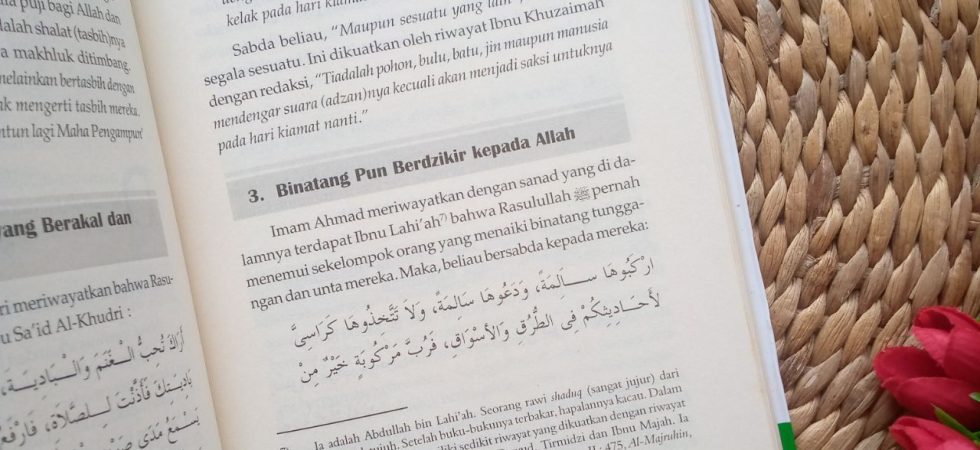 puji bagi Allah dan
dalah shalat (tasbih)nya
makhluk ditimbang.
melainkan bertasbih dengan
mengerti tasbih mereka.
lagi Maha Pengampun"
yang Berakal dan
meriwayatkan bahwa Rasu-
Sa'id Al-Khudri :
أَرَاكَ تُحِبُّ الْغَنَمَ وَالْبَادِيَةَ،
بَادِيَتِكَ فَأَذَّنْتَ لِلصَّلاَةِ، فَارْفَعْ
يَسْمَعُ مَدَى
kelak pada hari
Sabda beliau, "Maupun sesuatu yang
segala sesuatu. Ini dikuatkan oleh riwayat Ibnu Khuzaimah
dengan redaksi, "Tiadalah pohon, bulu, batu, jin maupun manusia
mendengar suara (adzan)nya kecuali akan menjadi saksi untuknya
pada hari kiamat nanti."
3. Binatang Pun Berdzikir kepada Allah
Imam Ahmad meriwayatkan dengan sanad yang di da-
lamnya terdapat Ibnu Lahi'ah7) bahwa Rasulullah ﷺ pernah
menemui sekelompok orang yang menaiki binatang tungga-
ngan dan unta mereka. Maka, beliau bersabda kepada mereka:
ارْكَبُوهَا سَالِمَةً، وَدَعُوهَا سَالِمَةً، وَلاَ تَتَّخِذُوهَا كَرَاسِيَّ
لأَحَادِيثِكُمْ فِى الطُّرُقِ وَالأَسْوَاقِ، فَرُبَّ مَرْكُوبَةٍ خَيْرٌ مِنْ
Ia adalah Abdullah bin Lahi'ah. Seorang rawi shaduq (sangat jujur) dari
Setelah buku-bukunya terbakar, hapalannya kacau. Dalam
sedikit riwayat yang dikuatkan dengan riwayat
Tirmidzi dan Ibnu Majah. Ia
475, Al-Majruhin,